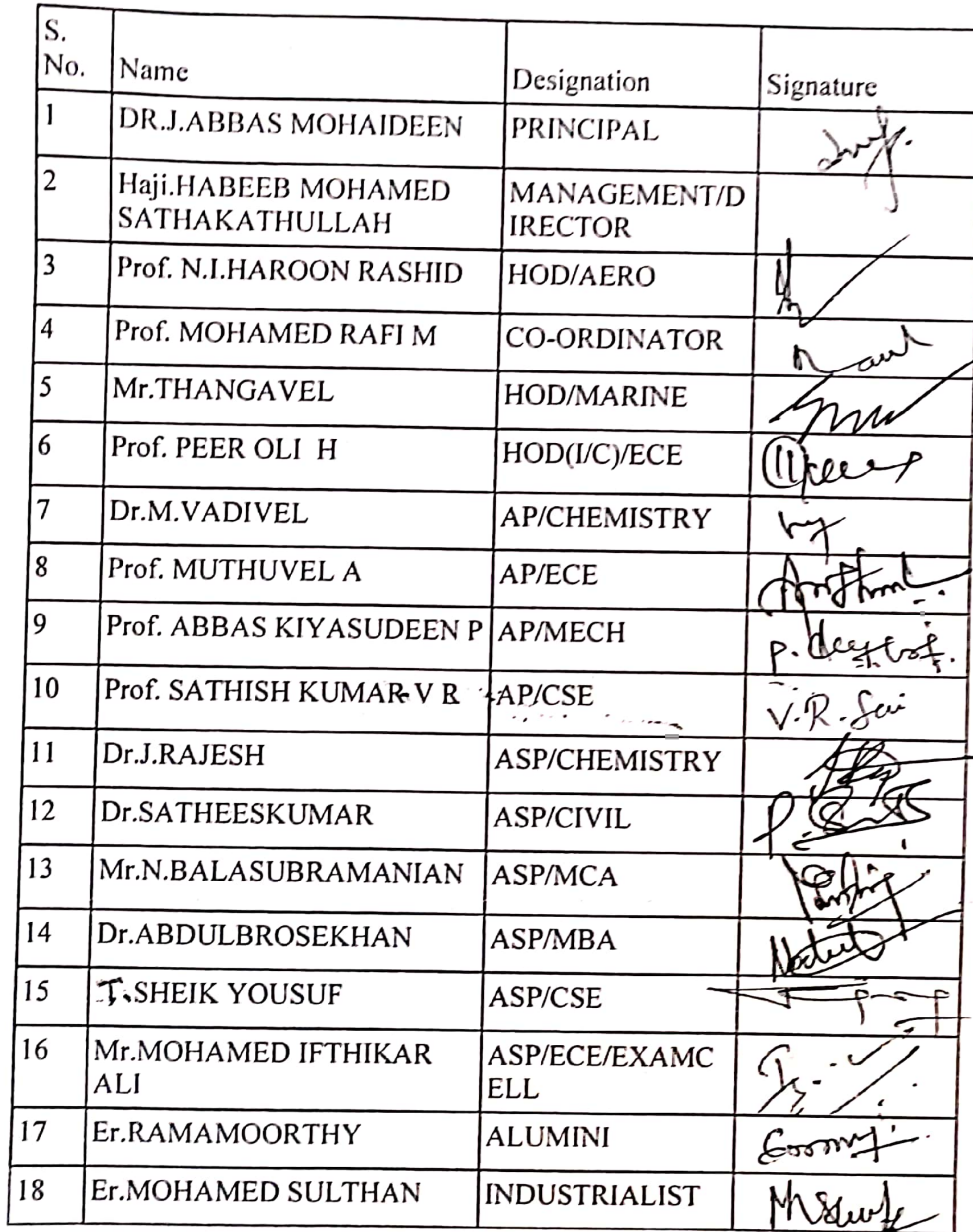 S.
No. Name Designation Signature
1 DR.J.ABBAS MOHAIDEEN PRINCIPAL
2 Haji.HABEEB MOHAMED MANAGEMENT/D
SATHAKATHULLAH IRECTOR
3 Prof. N.I.HAROON RASHID HOD/AERO
4 Prof. MOHAMED RAFI M CO-ORDINATOR
5 Mr.THANGAVEL HOD/MARINE
6 Prof. PEER OLI H HOD(I/C)/ECE
7 Dr.M.VADIVEL AP/CHEMISTRY
8 Prof. MUTHUVEL A AP/ECE
9 Prof. ABBAS KIYASUDEEN P AP/MECH
10 Prof. SATHISH KUMAR V R AP/CSE V.R.
11 Dr.J.RAJESH ASP/CHEMISTRY
12 Dr.SATHEESKUMAR ASP/CIVIL
13 Mr.N.BALASUBRAMANIAN ASP/MCA
14 Dr.ABDULBROSEKHAN ASP/MBA
15 T.SHEIK YOUSUF ASP/CSE
16 Mr.MOHAMED IFTHIKAR ASP/ECE/EXAMC
ALI ELL
17 Er.RAMAMOORTHY ALUMINI
18 Er.MOHAMED SULTHAN INDUSTRIALIST